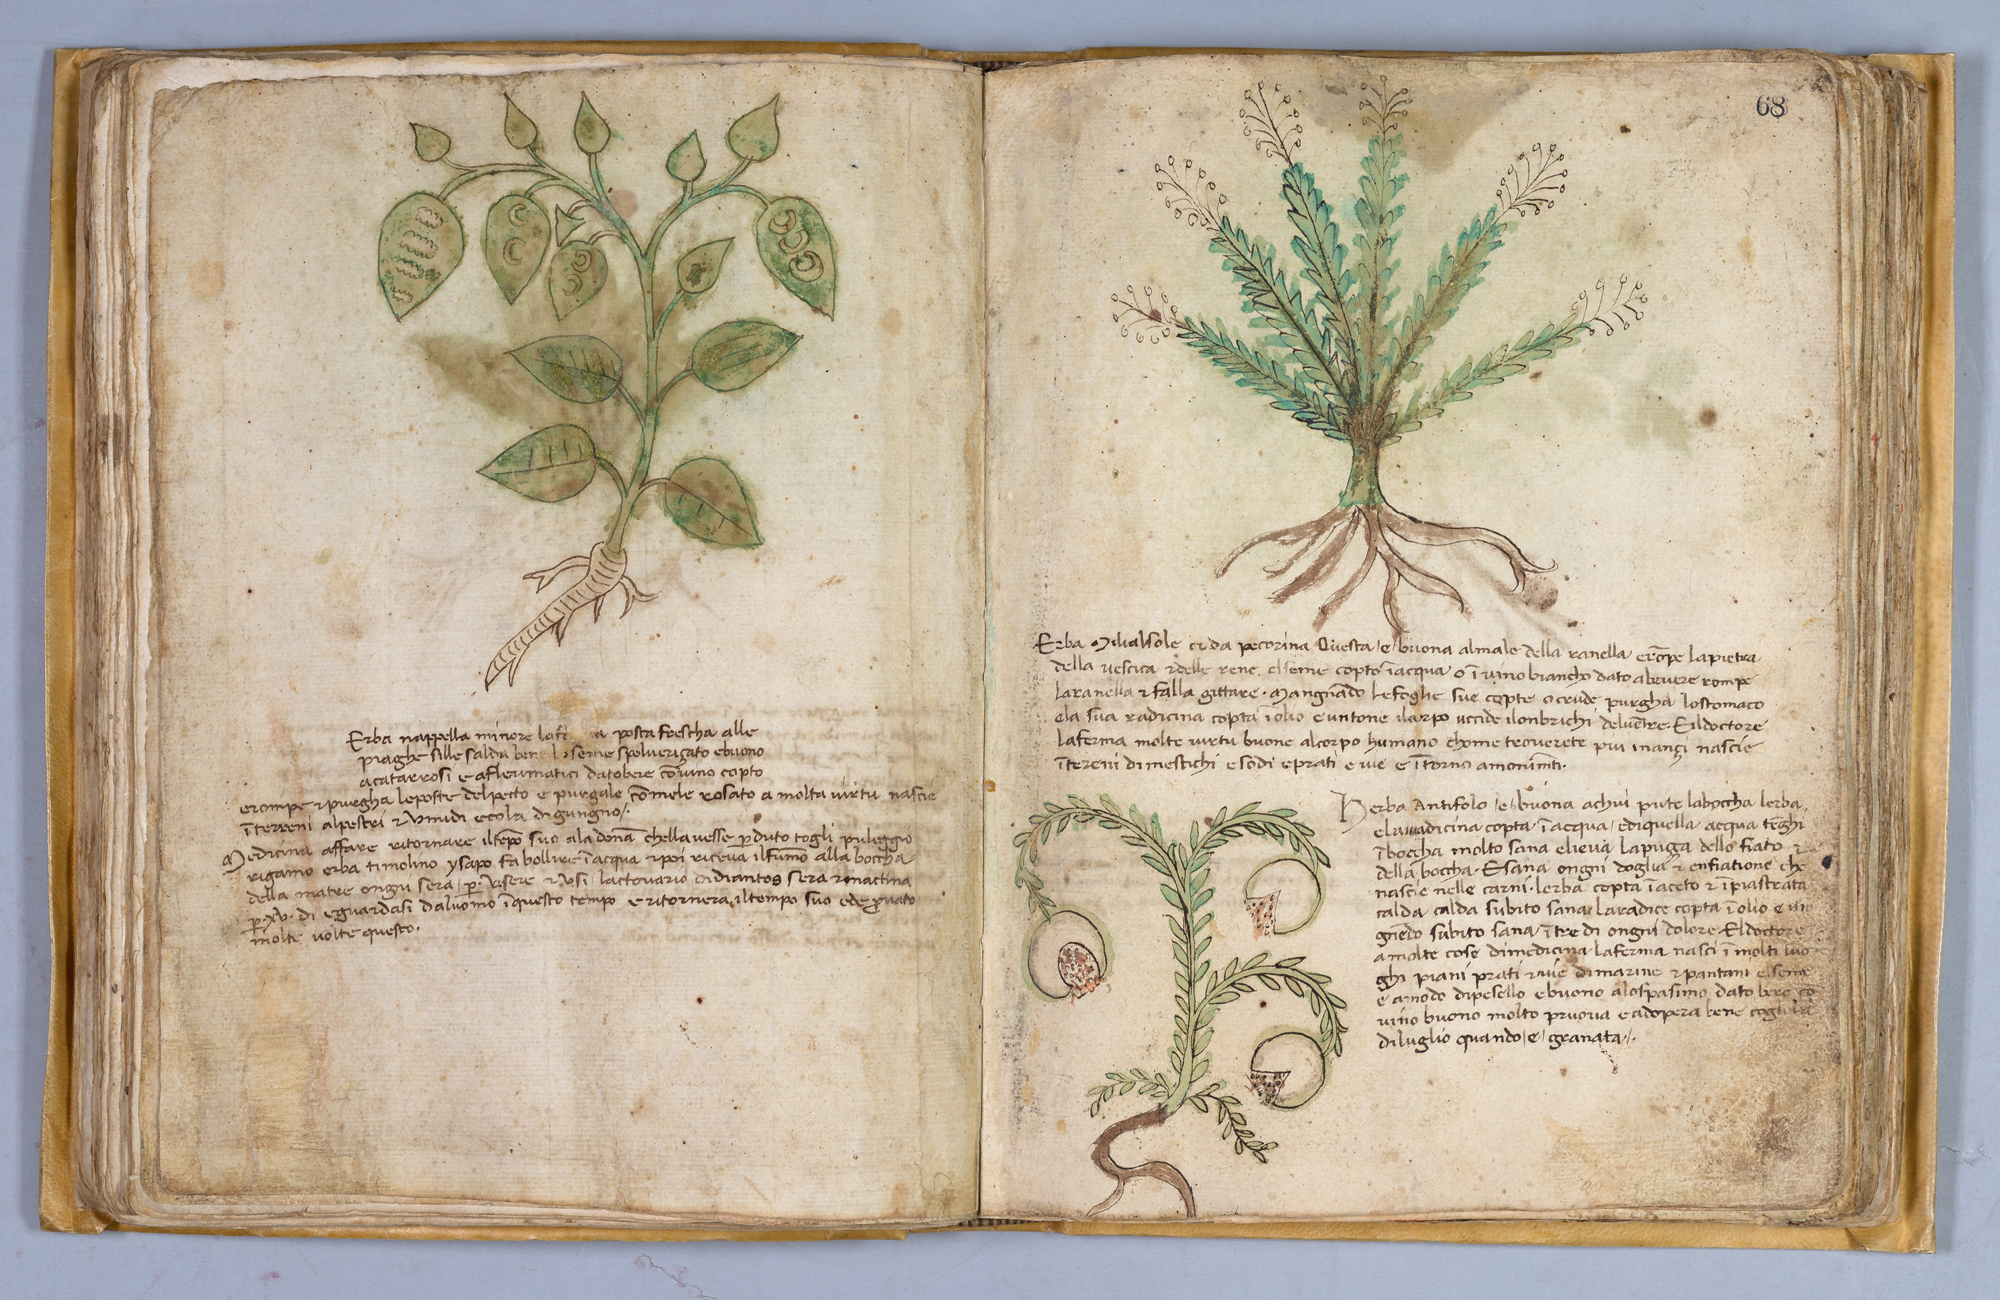 Erba nappella minore la a posta frescha alle
piaghe sille salda ben seme spolverizato e buono
acatarrosi e afleumatici datobere cōvino copto
erompe & purgha leposte delpecto e purgale cōmele rosato a molta virtu nascie
ī terreni alpestri & umidi e cola di giugno
Medicina affare ritornare iltēpo suo ala donā chellavesse pduto togli puleggio
rigamo erba timolino ysapo fa bollire ī acqua & poi riceva ilfumo alla boccha
della matre ongni sera p & usi lactovario didiantos sera & mactina
p xv di e guardasi daluomo ī questo tempo e ritornera iltempo suo ed e pvato
molte volte questo.
68
Erba Milialsole cida pecorina Questa e buona almale della ranella e rōpe lapietra
della vescica & delle rene, elseme copto ī acqua o ī vino biancho dato abevere rompe
laranella & falla gittare. Mangnādo le foghe sue copte o crude purgha lostomaco
ela sua radicina copta ī olio e untone ilcorpo uccide ilonbrichi delvētre. Eldoctore
laferma molte virtu buone alcorpo humano chome troverete piu inanzi nascie
ī tereni dimestichi e sodi e prati e vie e ī torno amonimti.
Herba Antifolo e buona achui pute laboccha lerba,
ela radicina copta ī acqua, ediquella acqua teghi
ī boccha molto sana elieva lapuza dello fiato &
della boccha. E sana ongni doglia & enfiatione che
nascie nelle carni. lerba copta ī aceto & īpiastrata
calda calda subito sana laradice copta ī olio e un
gnēdo subito sana ī tre di ongni dolore Eldoctore
amolte cose dimedicina laferma nasci ī molti luo
ghi piani prati & vie dimarine & pantani elseme
e amodo dipesello ebuono alospasimo dato bere co
vino buono molto pruova e adopera bene coglila
diluglio quando e granata.